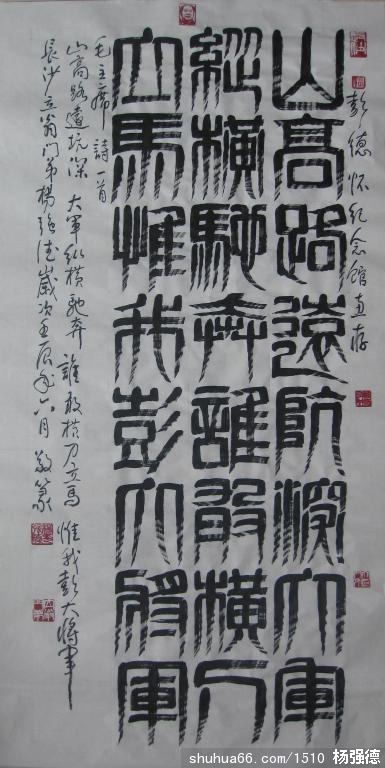 彭德怀纪念馆惠存
山高路遠阬深大軍
縱橫馳奔誰敢橫刀
立馬惟我彭大將軍
毛主席詩一首
山高路遠坑深 大軍纵横驰奔 誰敢横刀立馬 惟我彭大將軍
長沙立翁门弟楊强德歲次壬辰年六月敬篆
shuhua66.com/1510 杨强德